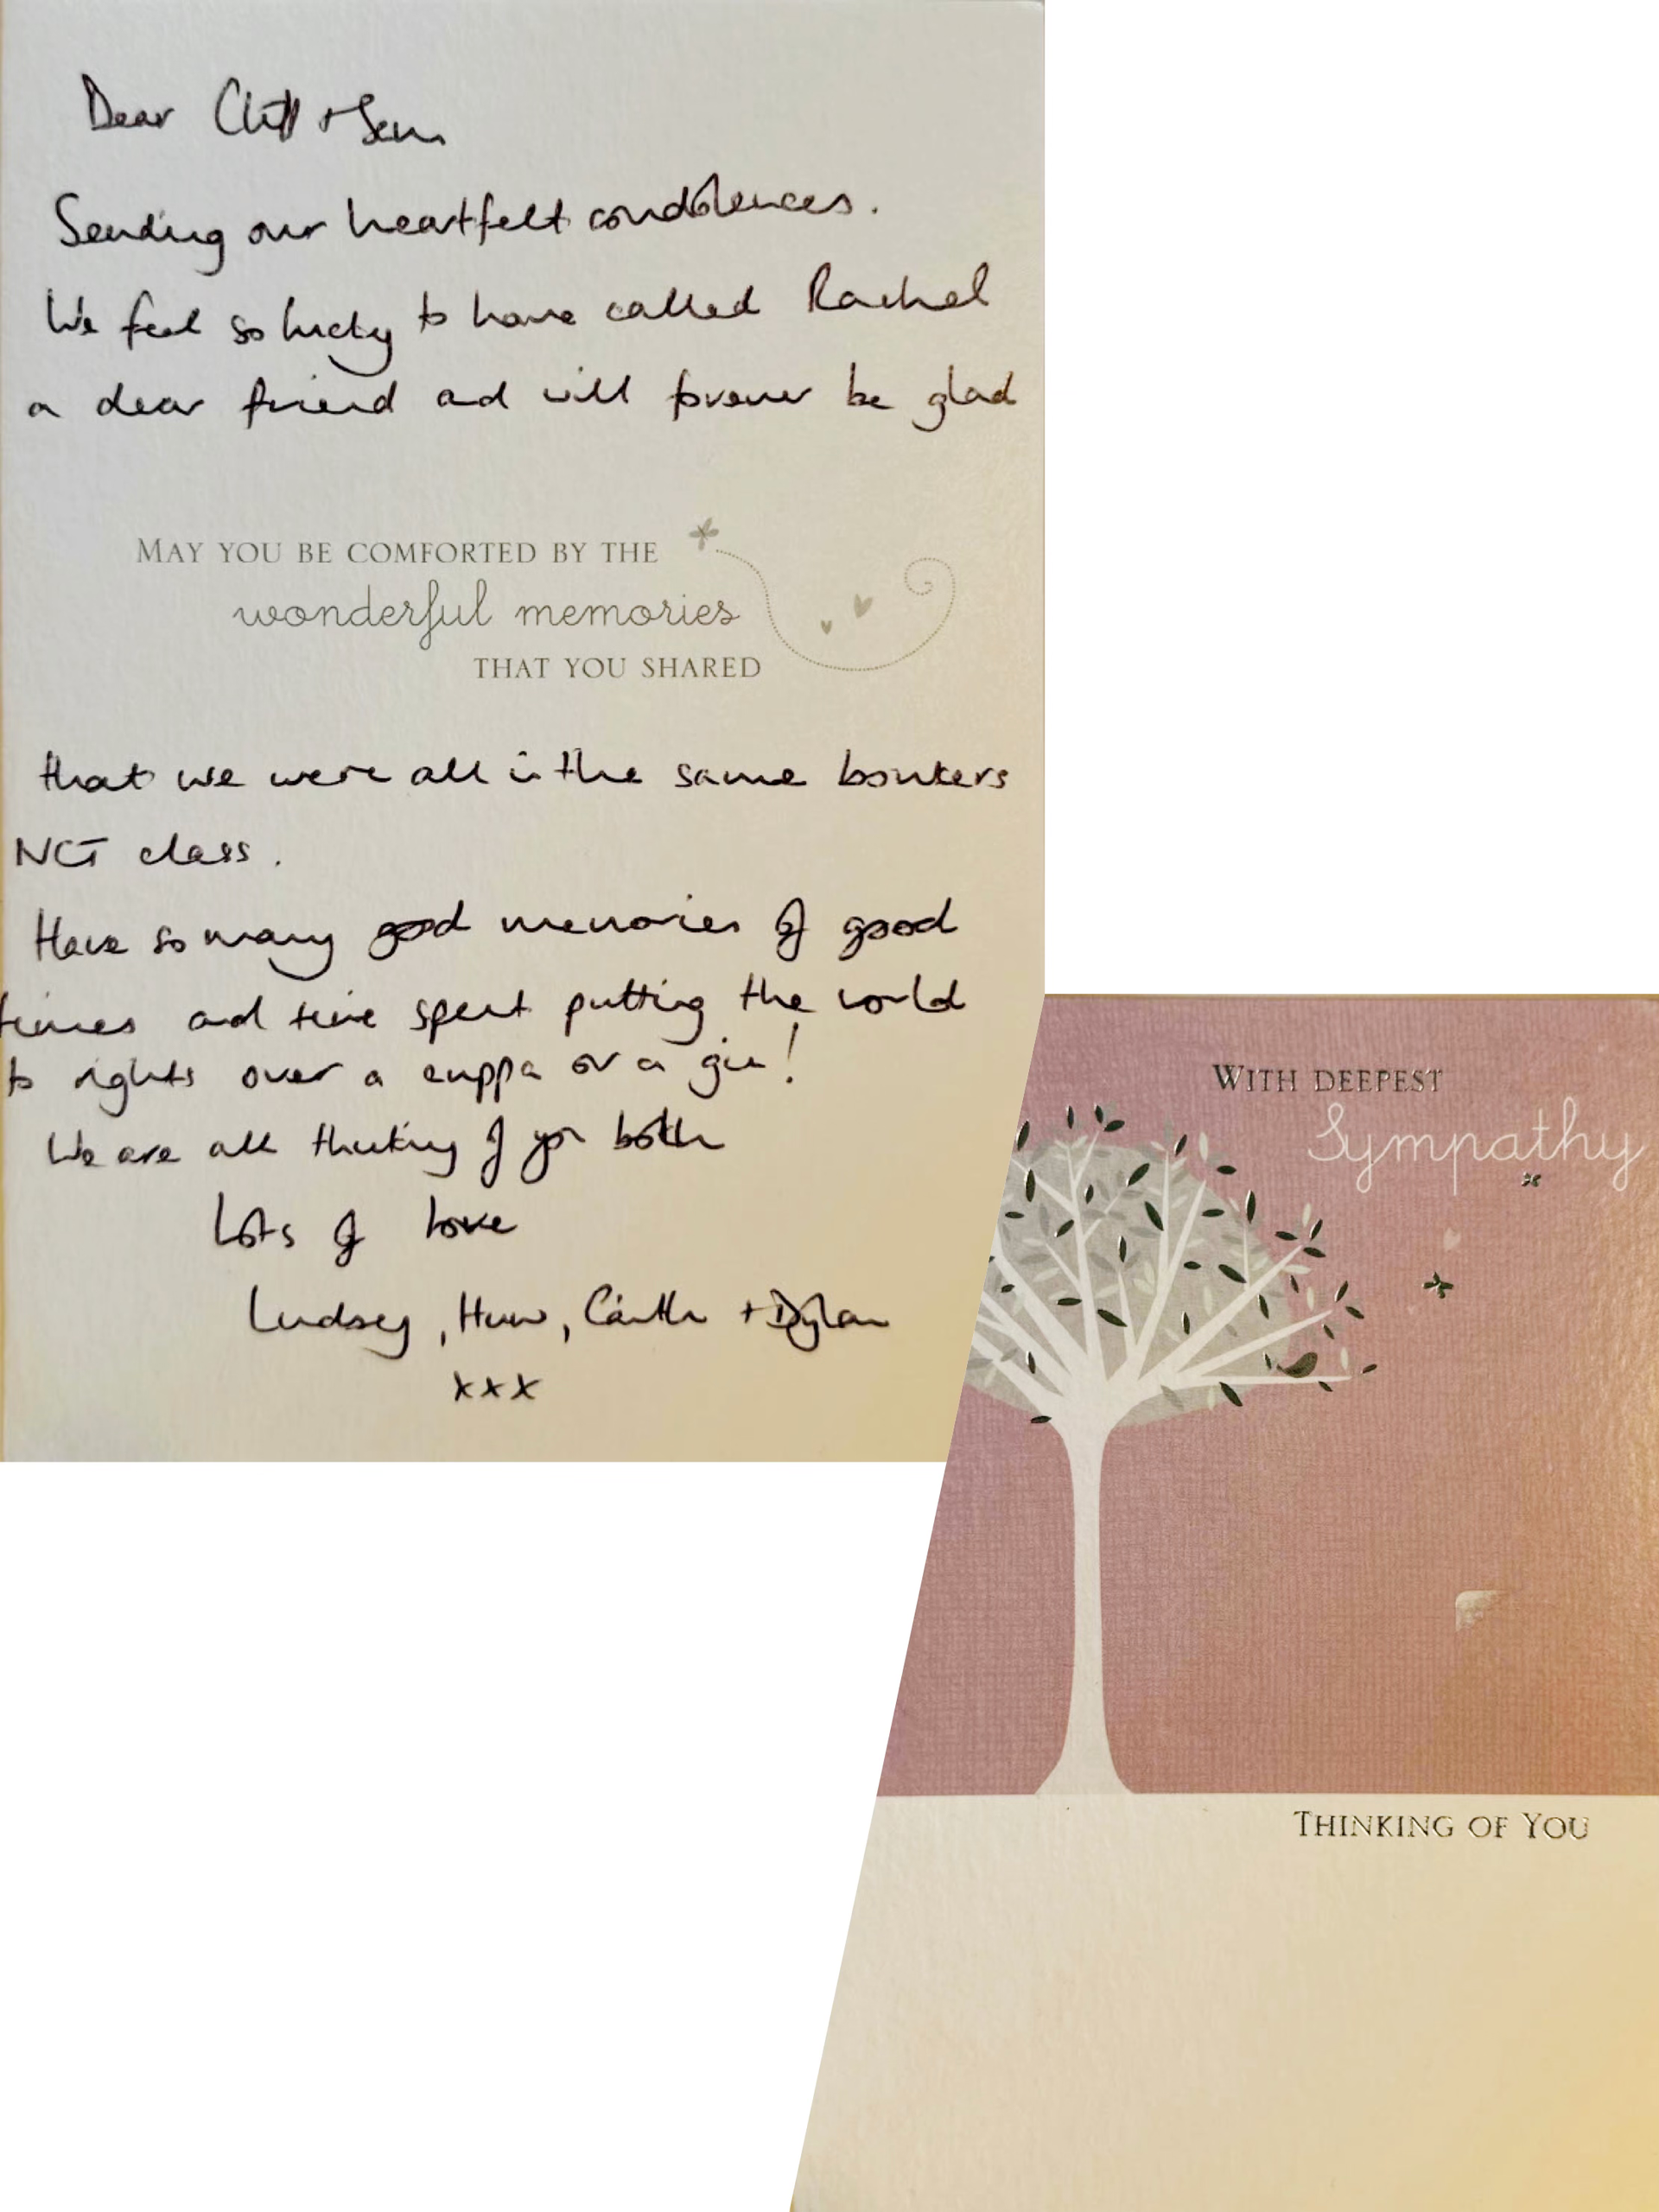 Dear Cliff + Sam
Sending our heartfelt condolences.
We feel so lucky to have called Rachel
a dear friend and will forever be glad
MAY YOU BE COMFORTED BY THE
wonderful memories
THAT YOU SHARED
that we were all in the same bonkers
NCT class.
Have so many good memories of good
times and time spent putting the world
to rights over a cuppa or a gin!
We are all thinking of you both
Lots of love
Lindsey, Huw, + Dylan
xxx
WITH DEEPEST
Sympathy
THINKING OF YOU